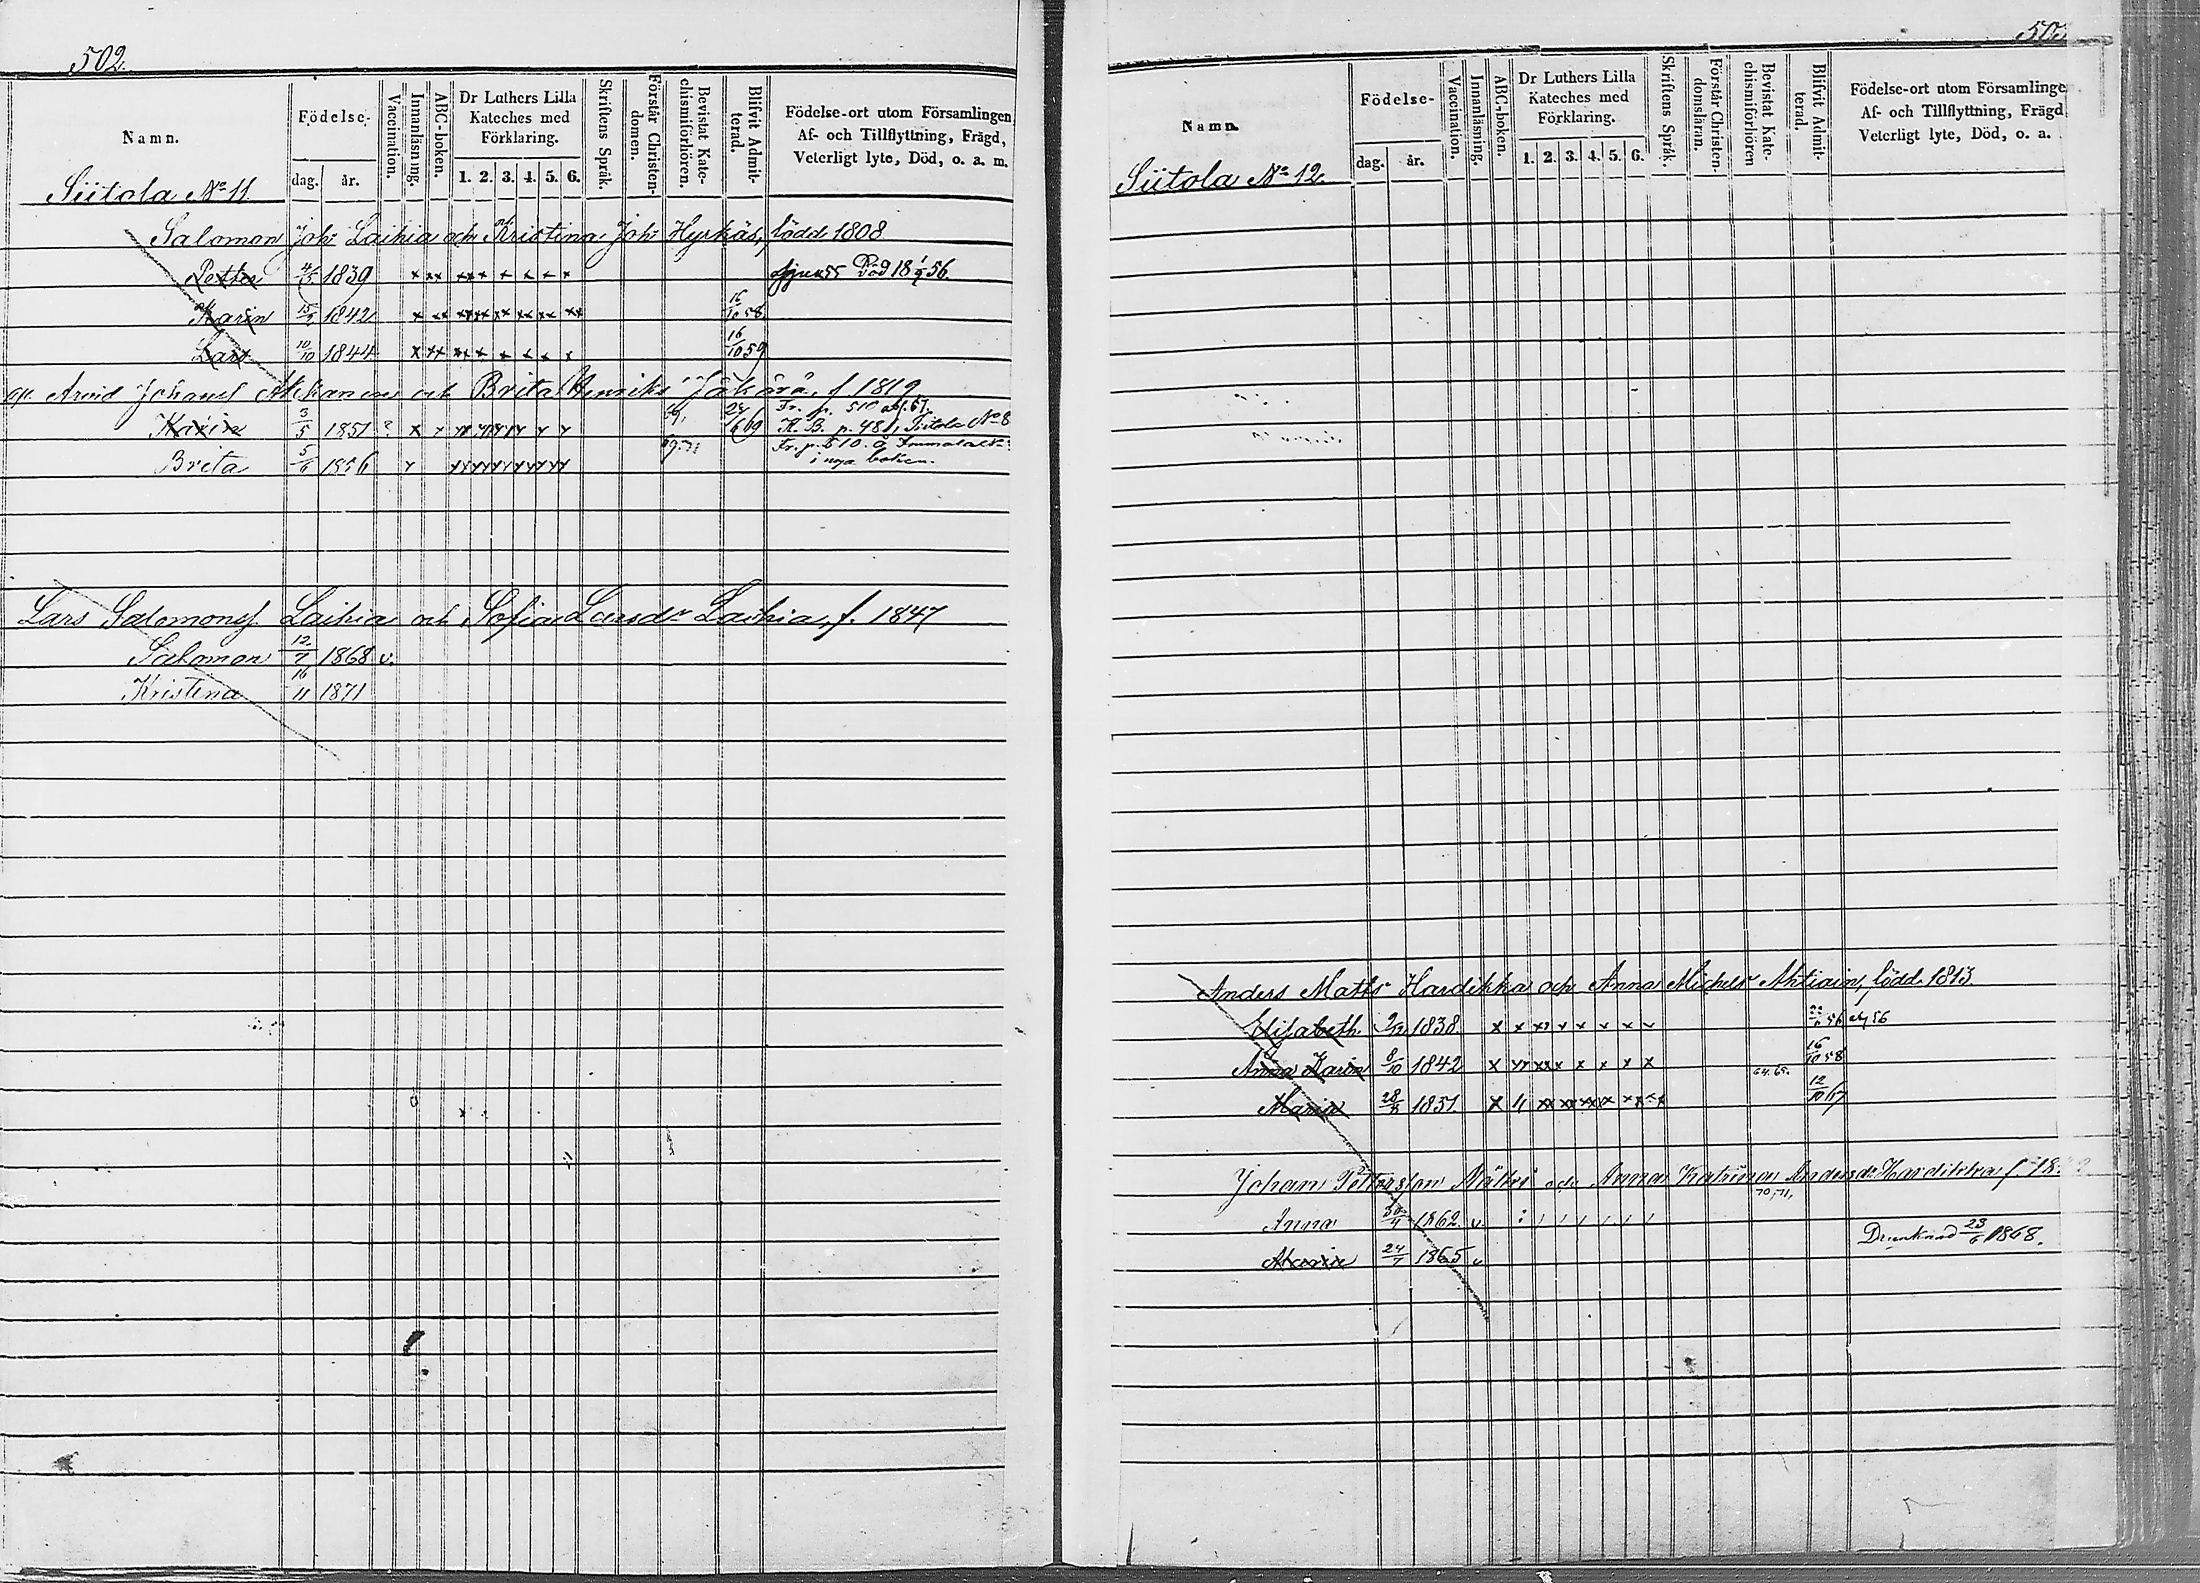 502.
Namn.
Födelse-
dag.
år.
Vaccination.
Innanläsning.
ABC-boken.
Dr Luthers Lilla
Kateches med
Förklaring.
1. 2. 3. 4. 5. 6.
Skriftens Språk.
Förstår Christen-
domen.
Bevistat Kate-
chismiförhören.
Blifvit Admit-
terad.
Födelse-ort utom Församlingen
Af- och Tillflyttning, Frägd,
Veterligt lyte, Död, o. a. m.
Siitola No 11.
Salomon Johs Laihia och Kristina Johs Hyrkäs, född 1808
Petter 4/5 1839 Död 18 1/9 56.
Karin 15/2 1842 16/10 58
Lars 10/10 1844 16/10 59
Arvid Johansf och Brita Henriks Jäkärä, f 1819
Fr. p. 510
Karin 3/5 1851 ? 69, 24/6 69 K. B. p. 481, Siitola No 8
Brita 5/6 1856 Fr. p. 510. å
i nya boken.
Lars Salomonsf. Laihia och Sofia Larsdr Laihia, f. 1847
Salomon 12/7 1868 v.
Kristina 16/11 1871
Namn.
Födelse-
dag.
år.
Vaccination.
Innanläsning.
ABC-boken.
Dr Luthers Lilla
Kateches med
Förklaring.
1. 2. 3. 4. 5. 6.
Skriftens Språk.
Förstår Christen-
domsläran.
Bevistat Kate-
chismiförhören
Blifvit Admit-
terad.
Födelse-ort utom Församlinge
Af- och Tillflyttning, Frägd
Veterligt lyte, Död, o. a.
Siitola No 12.
Anders Matts Hardikka och Anna Michels Ahtiain, född 1813.
Elisabeth 2/12 1838 56
Anna Karin 8/10 1842 64.65. 16/10 58
Maria 28/3 1851 12/10 67
Johan Pettersson Nätti och Anna Katrina Andersdr Hardikka f. 18
70, 71,
Anna 30/4 1862 v
Maria 24/7 1865 v Drunknad 23/6 1868.